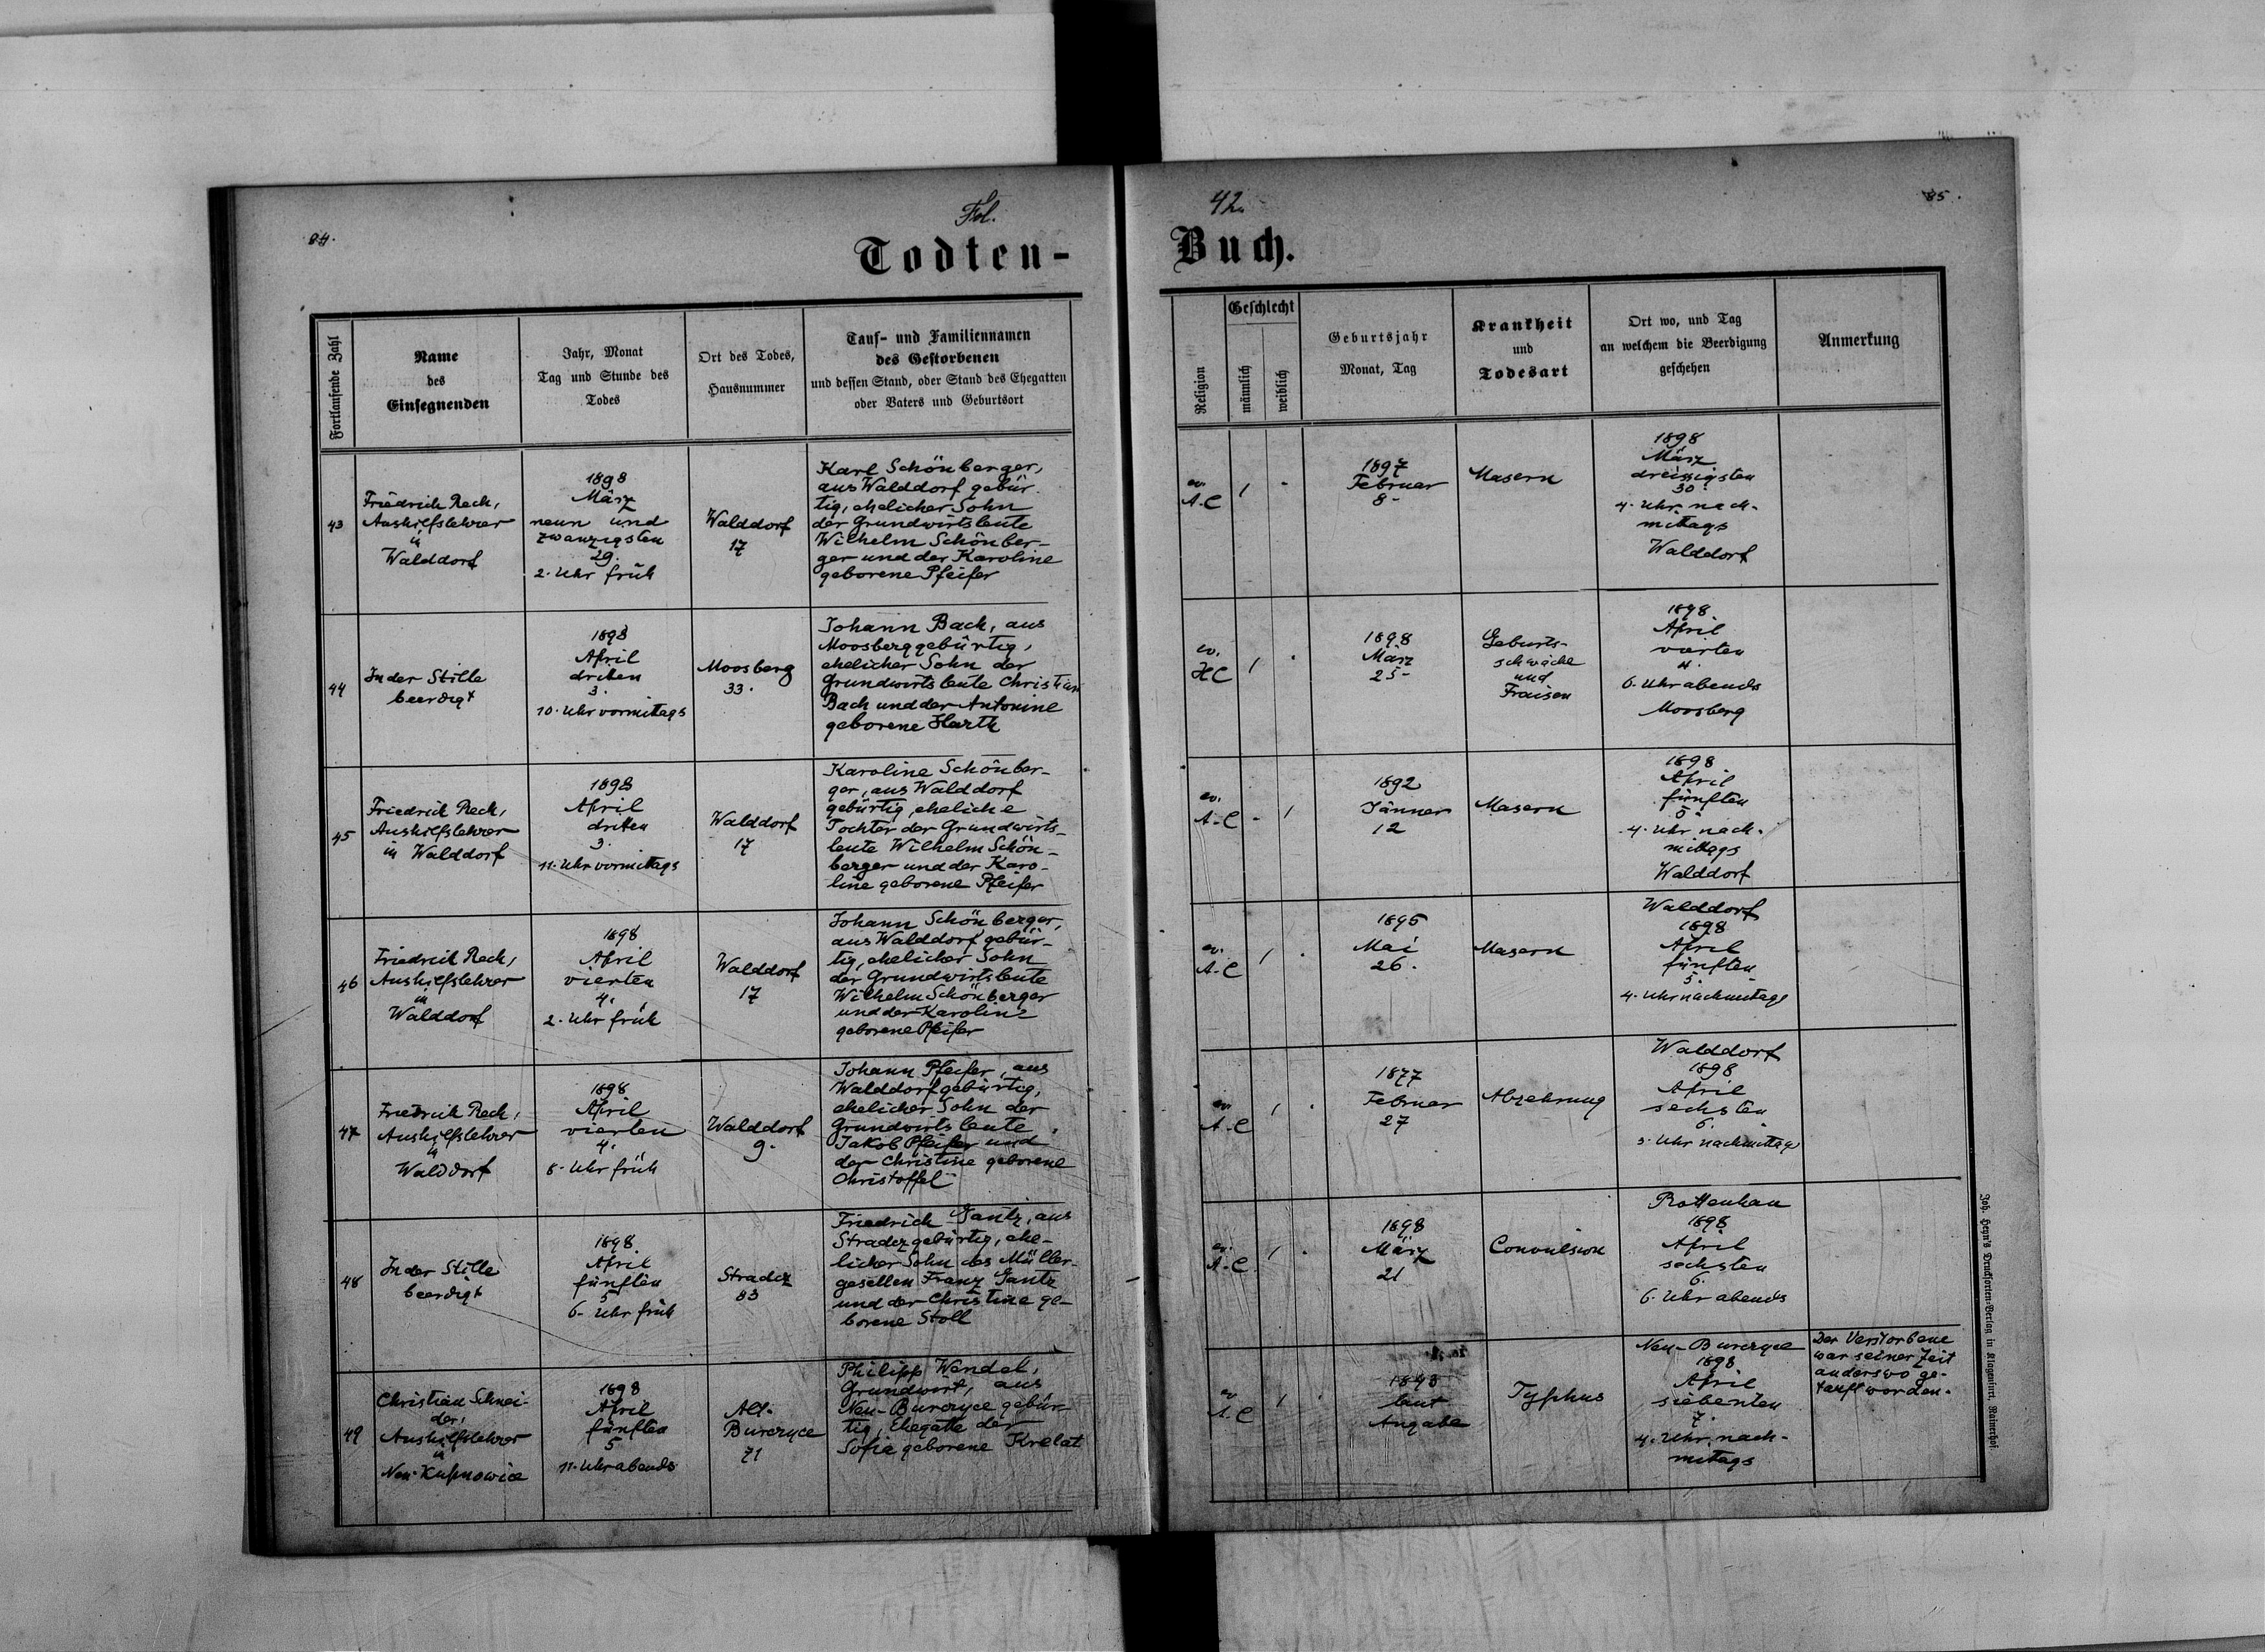 84.
Fol.
42.
85.
Todten-
Buch.
Fortlaufende Zahl
Name
des
Einsegnenden
Jahr, Monat
Tag und Stunde des
Todes
Ort des Todes,
Hausnummer
Tauf- und Familiennamen
des Gestorbenen
und dessen Stand, oder Stand des Ehegatten
oder Vaters und Geburtsort
Religion
Geschlecht
männlich
weiblich
Geburtsjahr
Monat, Tag
Krankheit
und
Todesart
Ort wo, und Tag
an welchem die Beerdigung
geschehen
Anmerkung
43
Friedrich Rech,
Aushilfslehrer
in
Walddorf
1898
März
neun und
zwanzigsten
29.
2. Uhr früh
Walddorf
17
Karl Schönberger,
aus Walddorf gebür-
tig, ehelicher Sohn
der Grundwirtsleute
Wilhelm Schönber-
ger und der Karoline
geborene Pfeifer
ev.
A.C
1
-
1897
Februar
8-
Masern
1898
März
dreissigsten
30.
4. Uhr nach-
mittags
Walddorf
44
In der Stille
beerdigt
1898
April
dritten
3.
10. Uhr vormittags
Moosberg
33.
Johann Bach, aus
Moosberg gebürtig,
ehelicher Sohn der
Grundwirtsleute Christian
Bach und der Antonine
geborene Harth
ev.
HC
1
1898
März
25-
Geburts-
schwäche
und
Fraisen
1898
April
vierten
4.
6. Uhr abends
Moosberg
45
Friedrich Rech,
Aushilfslehrer
in Walddorf
1898
April
dritten
3.
11. Uhr vormittags
Walddorf
17
Karoline Schönber-
ger, aus Walddorf
gebürtig, eheliche
Tochter der Grundwirts-
leute Wilhelm Schön-
berger und der Karo-
line geborene Pfeifer
ev.
A.C
-
1
1892
Jänner
12
Masern
1898
April
fünften
5.
4. Uhr nach-
mittags
Walddorf
46
Friedrich Rech,
Aushilfslehrer
in
Walddorf
1898
April
vierten
4.
2. Uhr früh
Walddorf
17
Johann Schönberger,
aus Walddorf gebür-
tig, ehelicher Sohn
der Grundwirtsleute
Wilhelm Schönberger
und der Karoline
geborene Pfeifer
ev.
A.C
1
1895
Mai
26.
Masern
Walddorf
1898
April
fünften
5.
4. Uhr nachmittags
47
Friedrich Rech,
Aushilfslehrer
in
Walddorf
1898
April
vierten
4.
8. Uhr früh
Walddorf
9.
Johann Pfeifer, aus
Walddorf gebürtig,
ehelicher Sohn der
Grundwirtsleute
Jakob Pfeifer und
der Christine geborene
Christoffel
ev.
A.C
1
1877
Februar
27
Abzehrung
Walddorf
1898
April
sechsten
6.
3. Uhr nachmittags
48
In der Stille
beerdigt
1898
April
fünften
5
6. Uhr früh
Stradcz
83
Friedrich Gantz, aus
Stradcz gebürtig, ehe-
licher Sohn des Müller-
gesellen Franz Gantz
und der Christine ge-
borene Stoll
ev.
A.C
1
1898
März
21
Convulsion
Rottenhan
1898
April
sechsten
6.
6. Uhr abends
49
Christian Schnei-
der,
Aushilfslehrer
in
Neu-Kupnowice
1898
April
fünften
5
11. Uhr abends
Alt-
Burczyce
71
Philipp Wendel,
Grundwirt, aus
Neu-Burczyce gebür-
tig, Ehegatte der
Sofia geborene Krelat
ev.
A.C
1
1848
laut
Angabe
Typhus
Neu-Burczyce
1898
April
siebenten
7.
4. Uhr nach-
mitags
Der Verstorbene
war seiner Zeit
anderswo ge-
tauft worden.
Joh. Heyn's Drucksorten-Verlag in Klagenfurt, Rainerhof.